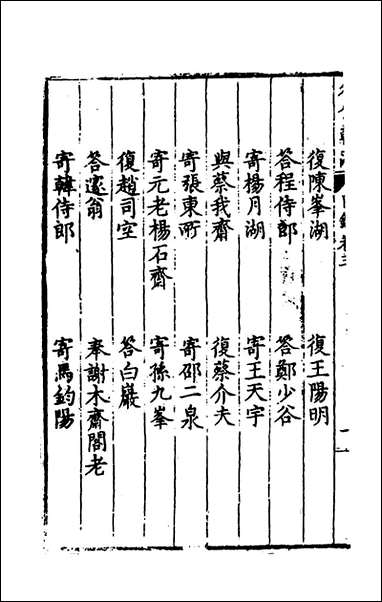 復陳峯湖　復王陽明
答程侍郎　答鄭少谷
寄楊月湖　寄王天宇
與蔡我齋　復蔡介夫
寄張東所　寄邵二泉
寄元老楊石齋　寄孫九峯
復趙司空　答白巖
答邃翁　奉謝木齋閣老
寄韓侍郎　寄馬鈞陽